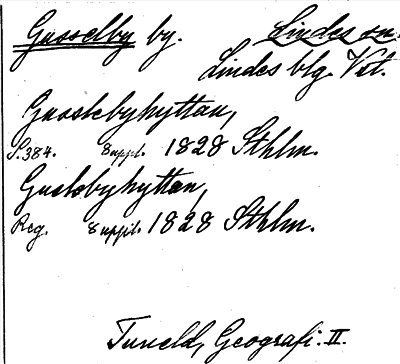 Gusselby by. Lindes sn.
Lindes blg. Vstm.
Gusslebyhyttan,
S. 384. Suppl. 1828 Sthlm.
Guslebyhyttan,
Reg. Suppl. 1828 Sthlm.
Tuneld, Geografi. II.